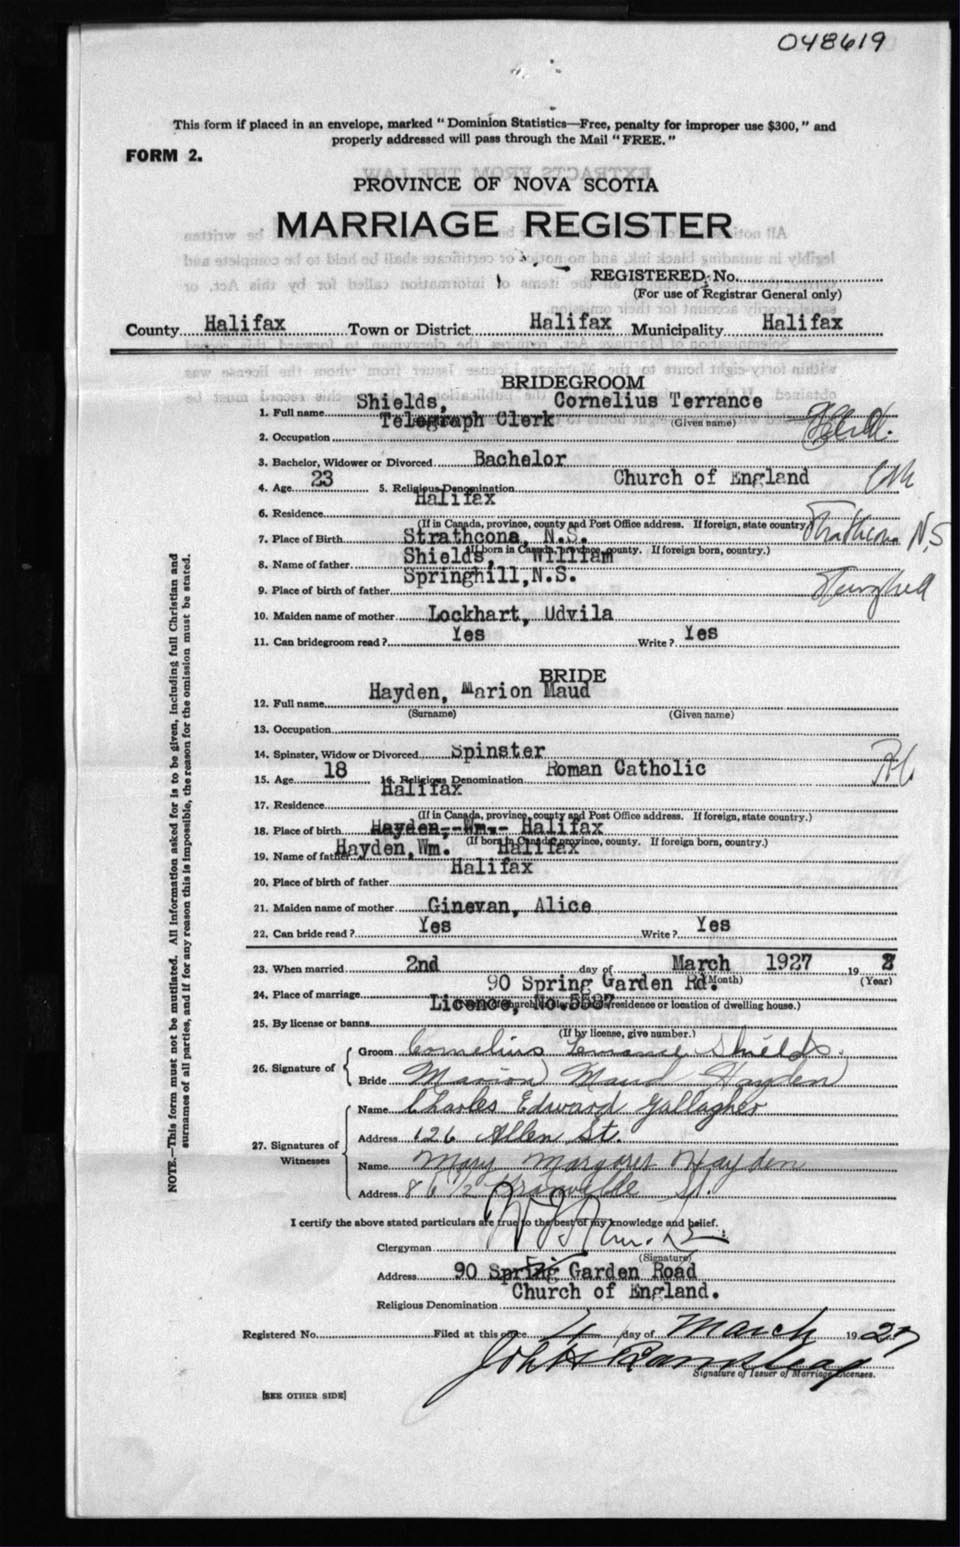 048619
This form if placed in an envelope, marked "Dominion Statistics—Free, penalty for improper use $300," and
properly addressed will pass through the Mail "FREE."
FORM 2.
PROVINCE OF NOVA SCOTIA
MARRIAGE REGISTER
REGISTERED, No.
(For use of Registrar General only)
County Halifax Town or District Halifax Municipality Halifax
BRIDEGROOM
1. Full name Shields, Cornelius Terrance
(Given name)
2. Occupation Telegraph Clerk
3. Bachelor, Widower or Divorced Bachelor
4. Age 23 5. Religious Denomination Church of England
6. Residence Halifax
(If in Canada, province, county and Post Office address. If foreign, state country.)
7. Place of Birth Strathcona, N.S. Strathcona N.S
(If born in Canada, province, county. If foreign born, country.)
8. Name of father Shields, William
9. Place of birth of father Springhill, N.S.
10. Maiden name of mother Lockhart, Udvila
11. Can bridegroom read? Yes Write? Yes
BRIDE
12. Full name Hayden, Marion Maud
(Surname) (Given name)
13. Occupation
14. Spinster, Widow or Divorced Spinster
15. Age 18 16. Religious Denomination Roman Catholic R.C
17. Residence Halifax
(If in Canada, province, county and Post Office address. If foreign, state country.)
18. Place of birth Hayden,--Wm.- Halifax
(If born in Canada, province, county. If foreign born, country.)
19. Name of father Hayden, Wm. Halifax
20. Place of birth of father Halifax
21. Maiden name of mother Ginevan, Alice
22. Can bride read? Yes Write? Yes
23. When married 2nd day of March 1927 19
(Month) (Year)
24. Place of marriage 90 Spring Garden Rd.
residence or location of dwelling house.)
25. By license or banns Licence, No. 5587
(If by license, give number.)
26. Signature of
Groom Cornelius Terrance Shields.
Bride Marion Maud Hayden
27. Signatures of Witnesses
Name Charles Edward Gallagher
Address 126 Allen St.
Name Mary Margaret Hayden
Address 86 1/2 Granville St.
I certify the above stated particulars are true to the best of my knowledge and belief.
Clergyman
(Signature)
Address 90 Spring Garden Road
Religious Denomination Church of England.
Registered No. Filed at this office 4 day of March 1927
John H
Signature of Issuer of Marriage Licenses.
[SEE OTHER SIDE]
NOTE.—This form must not be mutilated. All information asked for is to be given, including full Christian and
surnames of all parties, and if for any reason this is impossible, the reason for the omission must be stated.